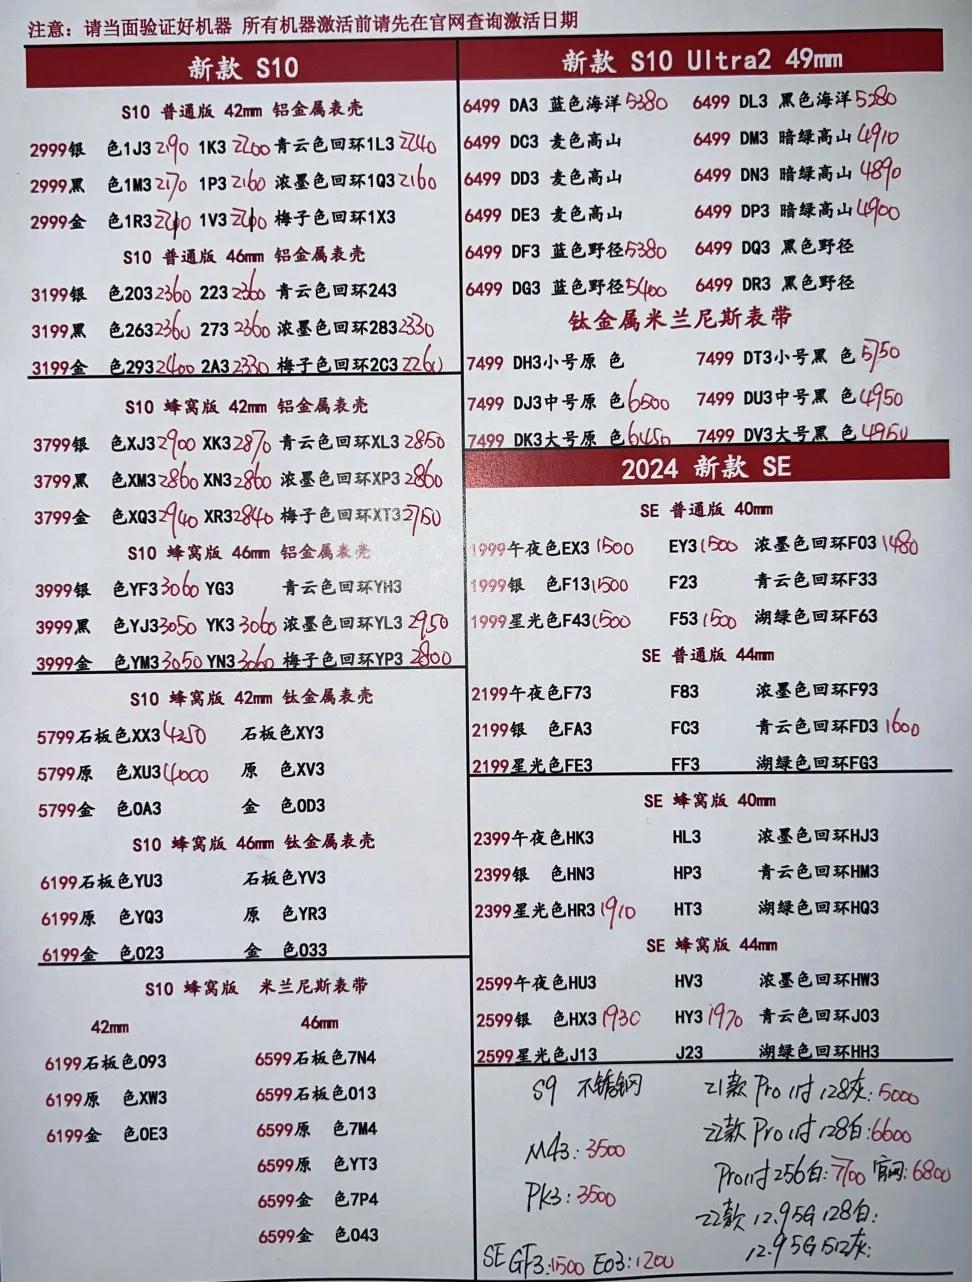 注意：请当面验证好机器 所有机器激活前请先在官网查询激活日期
新款 S10
S10 普通版 42mm 铝金属表壳
2999银 色1J3 2190 1K3 2200 青云色回环1L3 2240
2999黑 色1M3 2170 1P3 2160 浓墨色回环1Q3 2160
2999金 色1R3 1V3 梅子色回环1X3
S10 普通版 46mm 铝金属表壳
3199银 色203 2360 223 2360 青云色回环243
3199黑 色263 2360 273 2360 浓墨色回环283 2330
3199金 色293 2400 2A3 2330 梅子色回环2C3 2260
S10 蜂窝版 42mm 铝金属表壳
3799银 色XJ3 2900 XK3 2870 青云色回环XL3 2850
3799黑 色XM3 2860 XN3 2860 浓墨色回环XP3 2860
3799金 色XQ3 2940 XR3 2840 梅子色回环XT3 2750
S10 蜂窝版 46mm 铝金属表壳
3999银 色YF3 3060 YG3 青云色回环YH3
3999黑 色YJ3 3050 YK3 3060 浓墨色回环YL3 2950
3999金 色YM3 3050 YN3 3060 梅子色回环YP3 2800
S10 蜂窝版 42mm 钛金属表壳
5799石板色XX3 4250 石板色XY3
5799原 色XU3 4000 原 色XV3
5799金 色0A3 金 色0D3
S10 蜂窝版 46mm 钛金属表壳
6199石板色YU3 石板色YV3
6199原 色YQ3 原 色YR3
6199金 色023 金 色033
S10 蜂窝版 米兰尼斯表带
42mm 46mm
6199石板色093 6599石板色7N4
6199原 色XW3 6599石板色013
6199金 色0E3 6599原 色7M4
6599原 色YT3
6599金 色7P4
6599金 色043
新款 S10 Ultra2 49mm
6499 DA3 蓝色海洋 5380 6499 DL3 黑色海洋 5280
6499 DC3 麦色高山 6499 DM3 暗绿高山 4910
6499 DD3 麦色高山 6499 DN3 暗绿高山 4890
6499 DE3 麦色高山 6499 DP3 暗绿高山 4900
6499 DF3 蓝色野径 5380 6499 DQ3 黑色野径
6499 DG3 蓝色野径 5400 6499 DR3 黑色野径
钛金属米兰尼斯表带
7499 DH3小号原 色 7499 DT3小号黑 色 5750
7499 DJ3中号原 色 6500 7499 DU3中号黑 色 4950
7499 DK3大号原 色 6450 7499 DV3大号黑 色 4950
2024 新款 SE
SE 普通版 40mm
1999午夜色EX3 1500 EY3 1500 浓墨色回环F03 1480
1999银 色F13 1500 F23 青云色回环F33
1999星光色F43 1500 F53 1500 湖绿色回环F63
SE 普通版 44mm
2199午夜色F73 F83 浓墨色回环F93
2199银 色FA3 FC3 青云色回环FD3 1600
2199星光色FE3 FF3 湖绿色回环FG3
SE 蜂窝版 40mm
2399午夜色HK3 HL3 浓墨色回环HJ3
2399银 色HN3 HP3 青云色回环HM3
2399星光色HR3 1910 HT3 湖绿色回环HQ3
SE 蜂窝版 44mm
2599午夜色HU3 HV3 浓墨色回环HW3
2599银 色HX3 1930 HY3 1970 青云色回环J03
2599星光色J13 J23 湖绿色回环HH3
S9 不锈钢
M43: 3500
PK3: 3500
SE GF3: 1500 E03: 1200
21款 Pro 11寸 128灰: 5000
22款 Pro 11寸 128白: 6600
Pro 11寸 256白: 7100 官网: 6800
22款 12.9 5G 128白:
12.9 5G 512灰: